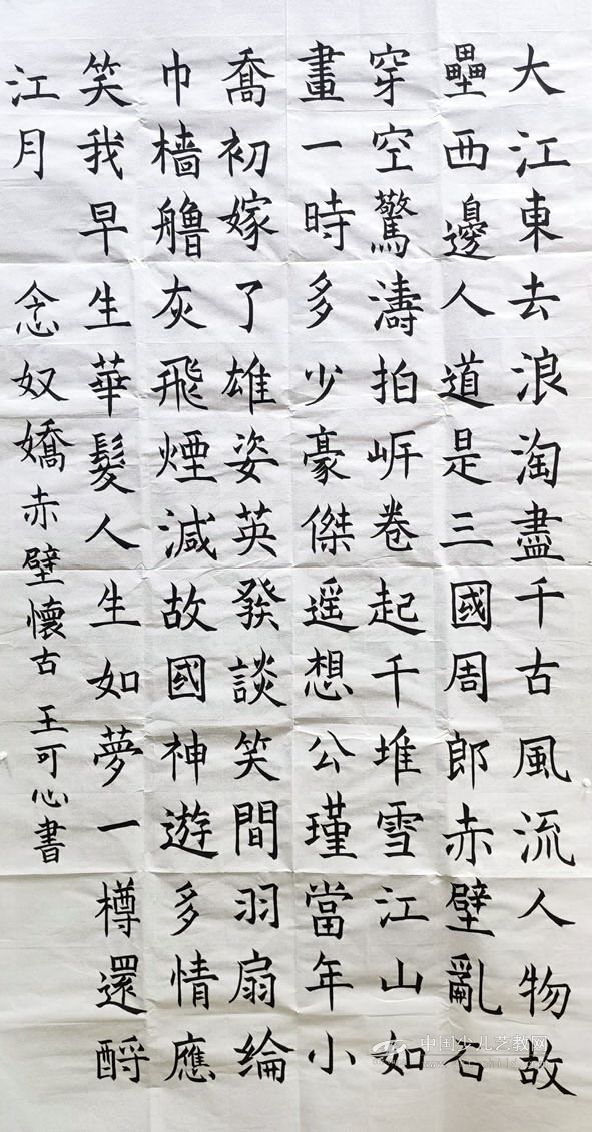 大江東去浪淘盡千古風流人物故
壘西邊人道是三國周郎赤壁亂石
穿空驚濤拍岍卷起千堆雪江山如
畫一時多少豪傑遥想公瑾當年小
喬初嫁了雄姿英發談笑間羽扇綸
巾樯艣灰飛煙減故國神遊多情應
笑我早生華髮人生如夢一樽還酹
江月 念奴嬌赤壁懷古 王可心書
中国少儿艺教网